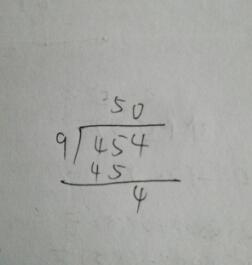 50
9 454
45
4